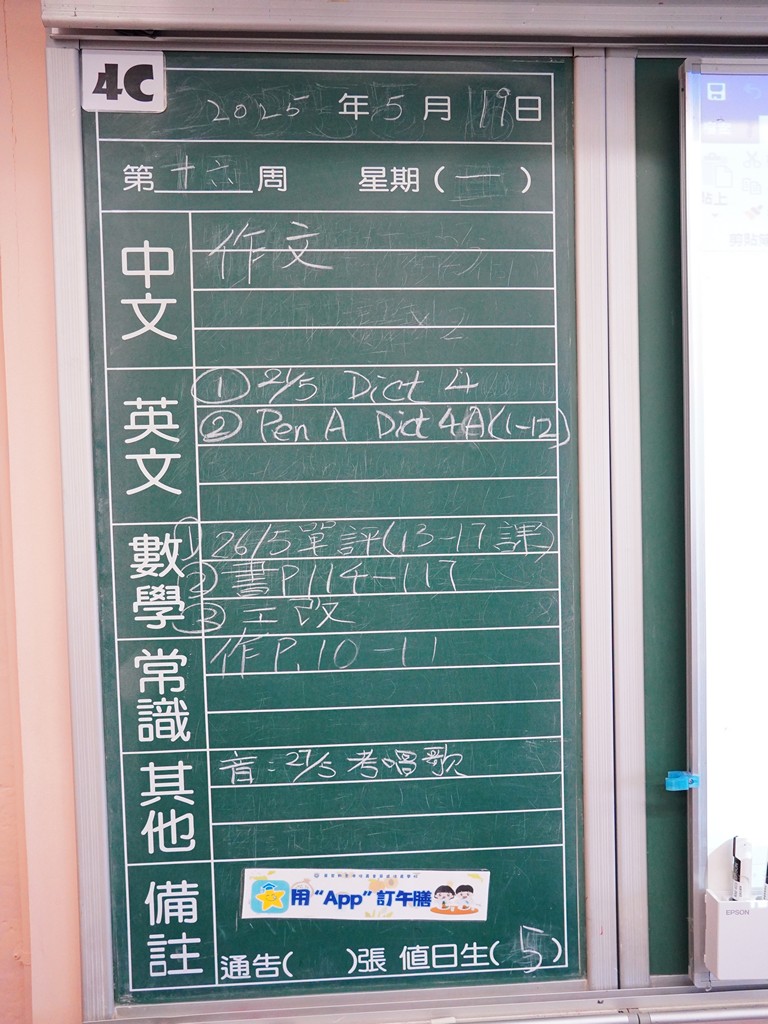 4C
2025年5月19日
第十六周 星期(一)
中文
作文
英文
① 21/5 Dict 4
② Pen A Dict 4A(1-12)
數學
① 26/5 單評(13-17課)
② 書P.114-117
③ 工改
常識
作P.10-11
其他
音:27/5 考唱歌
備註
用“App”訂午膳
通告( )張 值日生(5)
EPSON